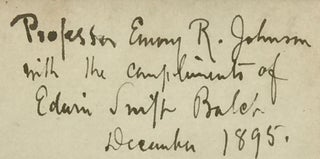 Professor Emory R. Johnson
with the compliments of
Edwin Swift Balch
December 1895.